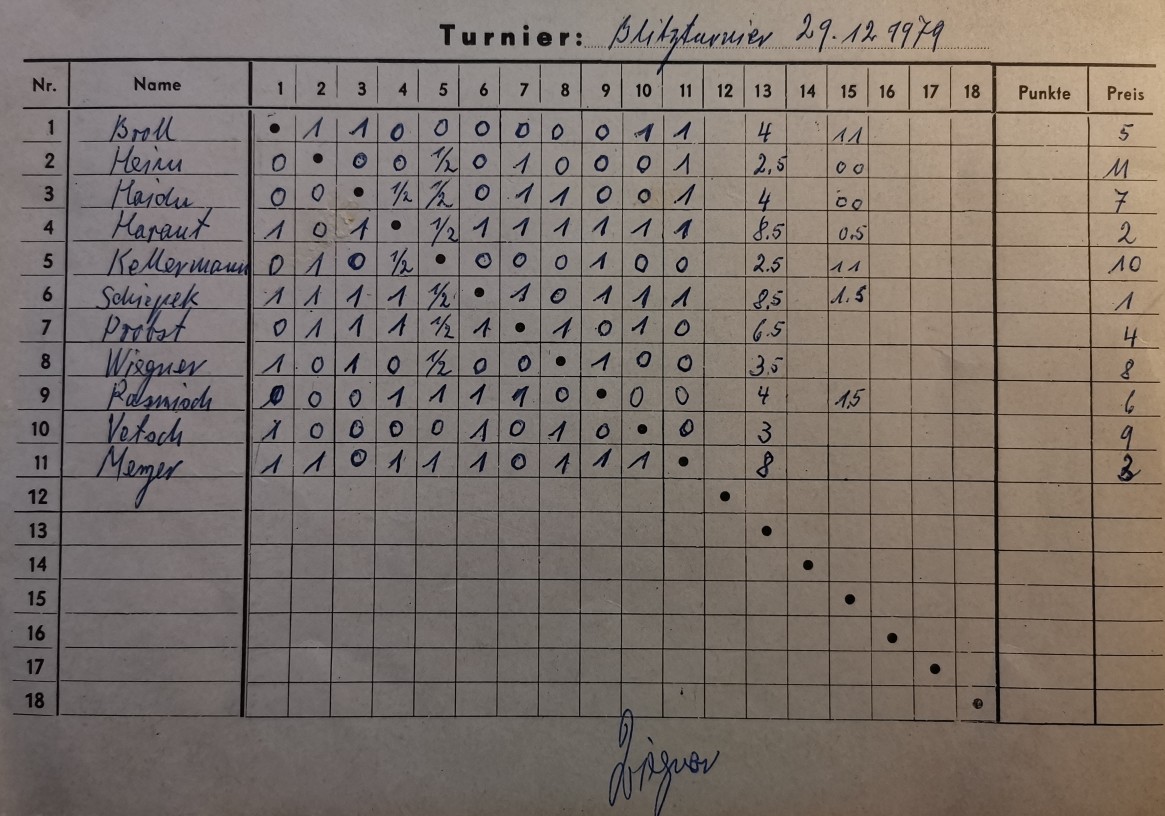 Turnier: Blitzturnier 29.12 1979
Nr. Name 1 2 3 4 5 6 7 8 9 10 11 12 13 14 15 16 17 18 Punkte Preis
1 Broll • 1 1 0 0 0 0 0 0 1 1 4 11 5
2 Heim 0 • 0 0 1/2 0 1 0 0 0 1 2,5 00 11
3 Haidu 0 0 • 1/2 1/2 0 1 1 0 0 1 4 00 7
4 Haraut 1 0 1 • 1/2 1 1 1 1 1 1 8.5 0.5 2
5 Kellermann 0 1 0 1/2 • 0 0 0 1 0 0 2.5 11 10
6 Schiepek 1 1 1 1 1/2 • 1 0 1 1 1 8,5 1.5 1
7 Probst 0 1 1 1 1/2 1 • 1 0 1 0 6.5 4
8 Wiegner 1 0 1 0 1/2 0 0 • 1 0 0 3,5 8
9 0 0 0 1 1 1 1 0 • 0 0 4 15 6
10 Vetsch 1 0 0 0 0 1 0 1 0 • 0 3 9
11 Menger 1 1 0 1 1 1 0 1 1 1 • 8
12 •
13 •
14 •
15 •
16 •
17 •
18 •
Wiegner